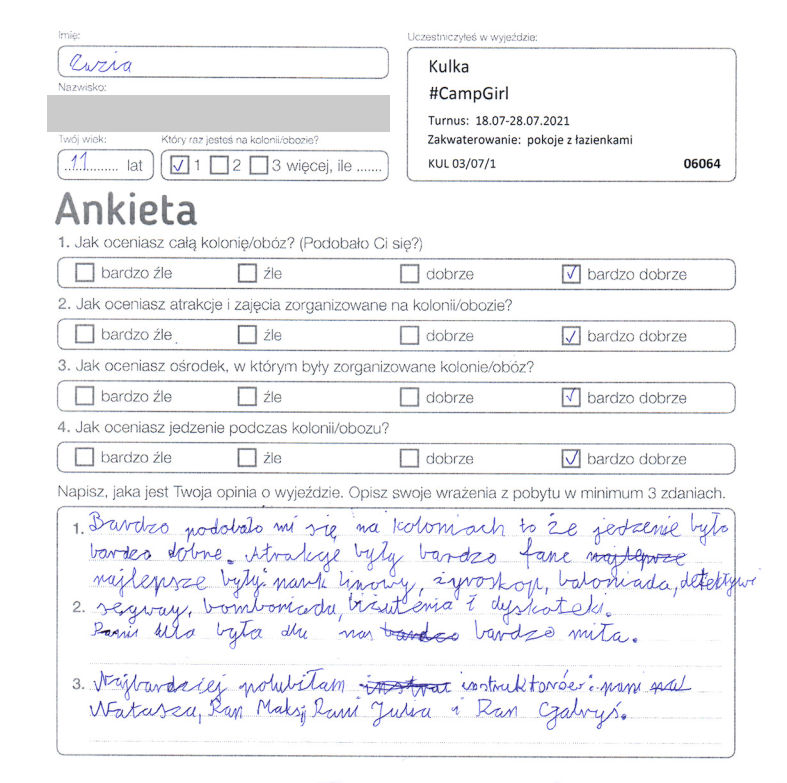 Imię:
Zuzia
Nazwisko:
Twój wiek: Który raz jesteś na kolonii/obozie?
11 lat 1 2 3 więcej, ile .......
Uczestniczyłeś w wyjeździe:
Kulka
#CampGirl
Turnus: 18.07-28.07.2021
Zakwaterowanie: pokoje z łazienkami
KUL 03/07/1 06064
Ankieta
1. Jak oceniasz całą kolonię/obóz? (Podobało Ci się?)
bardzo źle źle dobrze bardzo dobrze
2. Jak oceniasz atrakcje i zajęcia zorganizowane na kolonii/obozie?
bardzo źle źle dobrze bardzo dobrze
3. Jak oceniasz ośrodek, w którym były zorganizowane kolonie/obóz?
bardzo źle źle dobrze bardzo dobrze
4. Jak oceniasz jedzenie podczas kolonii/obozu?
bardzo źle źle dobrze bardzo dobrze
Napisz, jaka jest Twoja opinia o wyjeździe. Opisz swoje wrażenia z pobytu w minimum 3 zdaniach.
1. Bardzo podobało mi się na koloniach to że jedzenie było
bardzo dobre. Atrakcje były bardzo fane najlepsze
najlepsze były: park linowy, żyroskop, baloniada, detektywi
2. segway, bomboniada, biżuteria i dyskoteki.
Pani Ula była dla nas bardzo bardzo miła.
3. Najbardziej polubiłam instruktorów: pani
Natasza, Pan Maksj Pani Julia i Pan